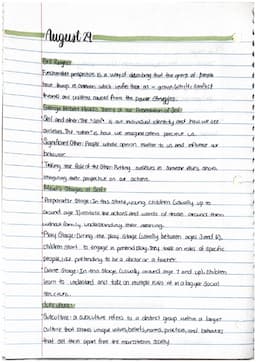 August 29
Functionalist perspective is a way of describing that the group of people
have things in common which unites them as a group. Usually conflict
George Herbert Mead's Theory of the Presentation of Self:
•Self and other: The "self" is our individual identity and how we see
ourselves. The "other" is how we imagine others perceive us.
•Significant Other: People whose opinion matter to us and influence our
behavior.
•Taking the Role of the Other: Putting ourselves in someone else's shoes,
imagining their perspective on our actions.
Mead's Stages of Self:
•Preparatory Stage: In this stage, young children (usually up to
around age 3) imitate the actions and words of those around them
without fully understanding their meaning.
•Play Stage: During the play stage (usually between ages 3 and 6),
children start to engage in pretend play. They take on roles of specific
people, like pretending to be a doctor or a teacher.
•Game Stage: In this stage, (usually around age 7 and up), children
learn to understand and take on multiple roles at in a bigger social
structure.
Subcultures:
•Subculture: a subculture refers to a distinct group within a larger
culture that shares unique values, beliefs, norms, practices, and behaviors
that set them apart from the mainstream society.